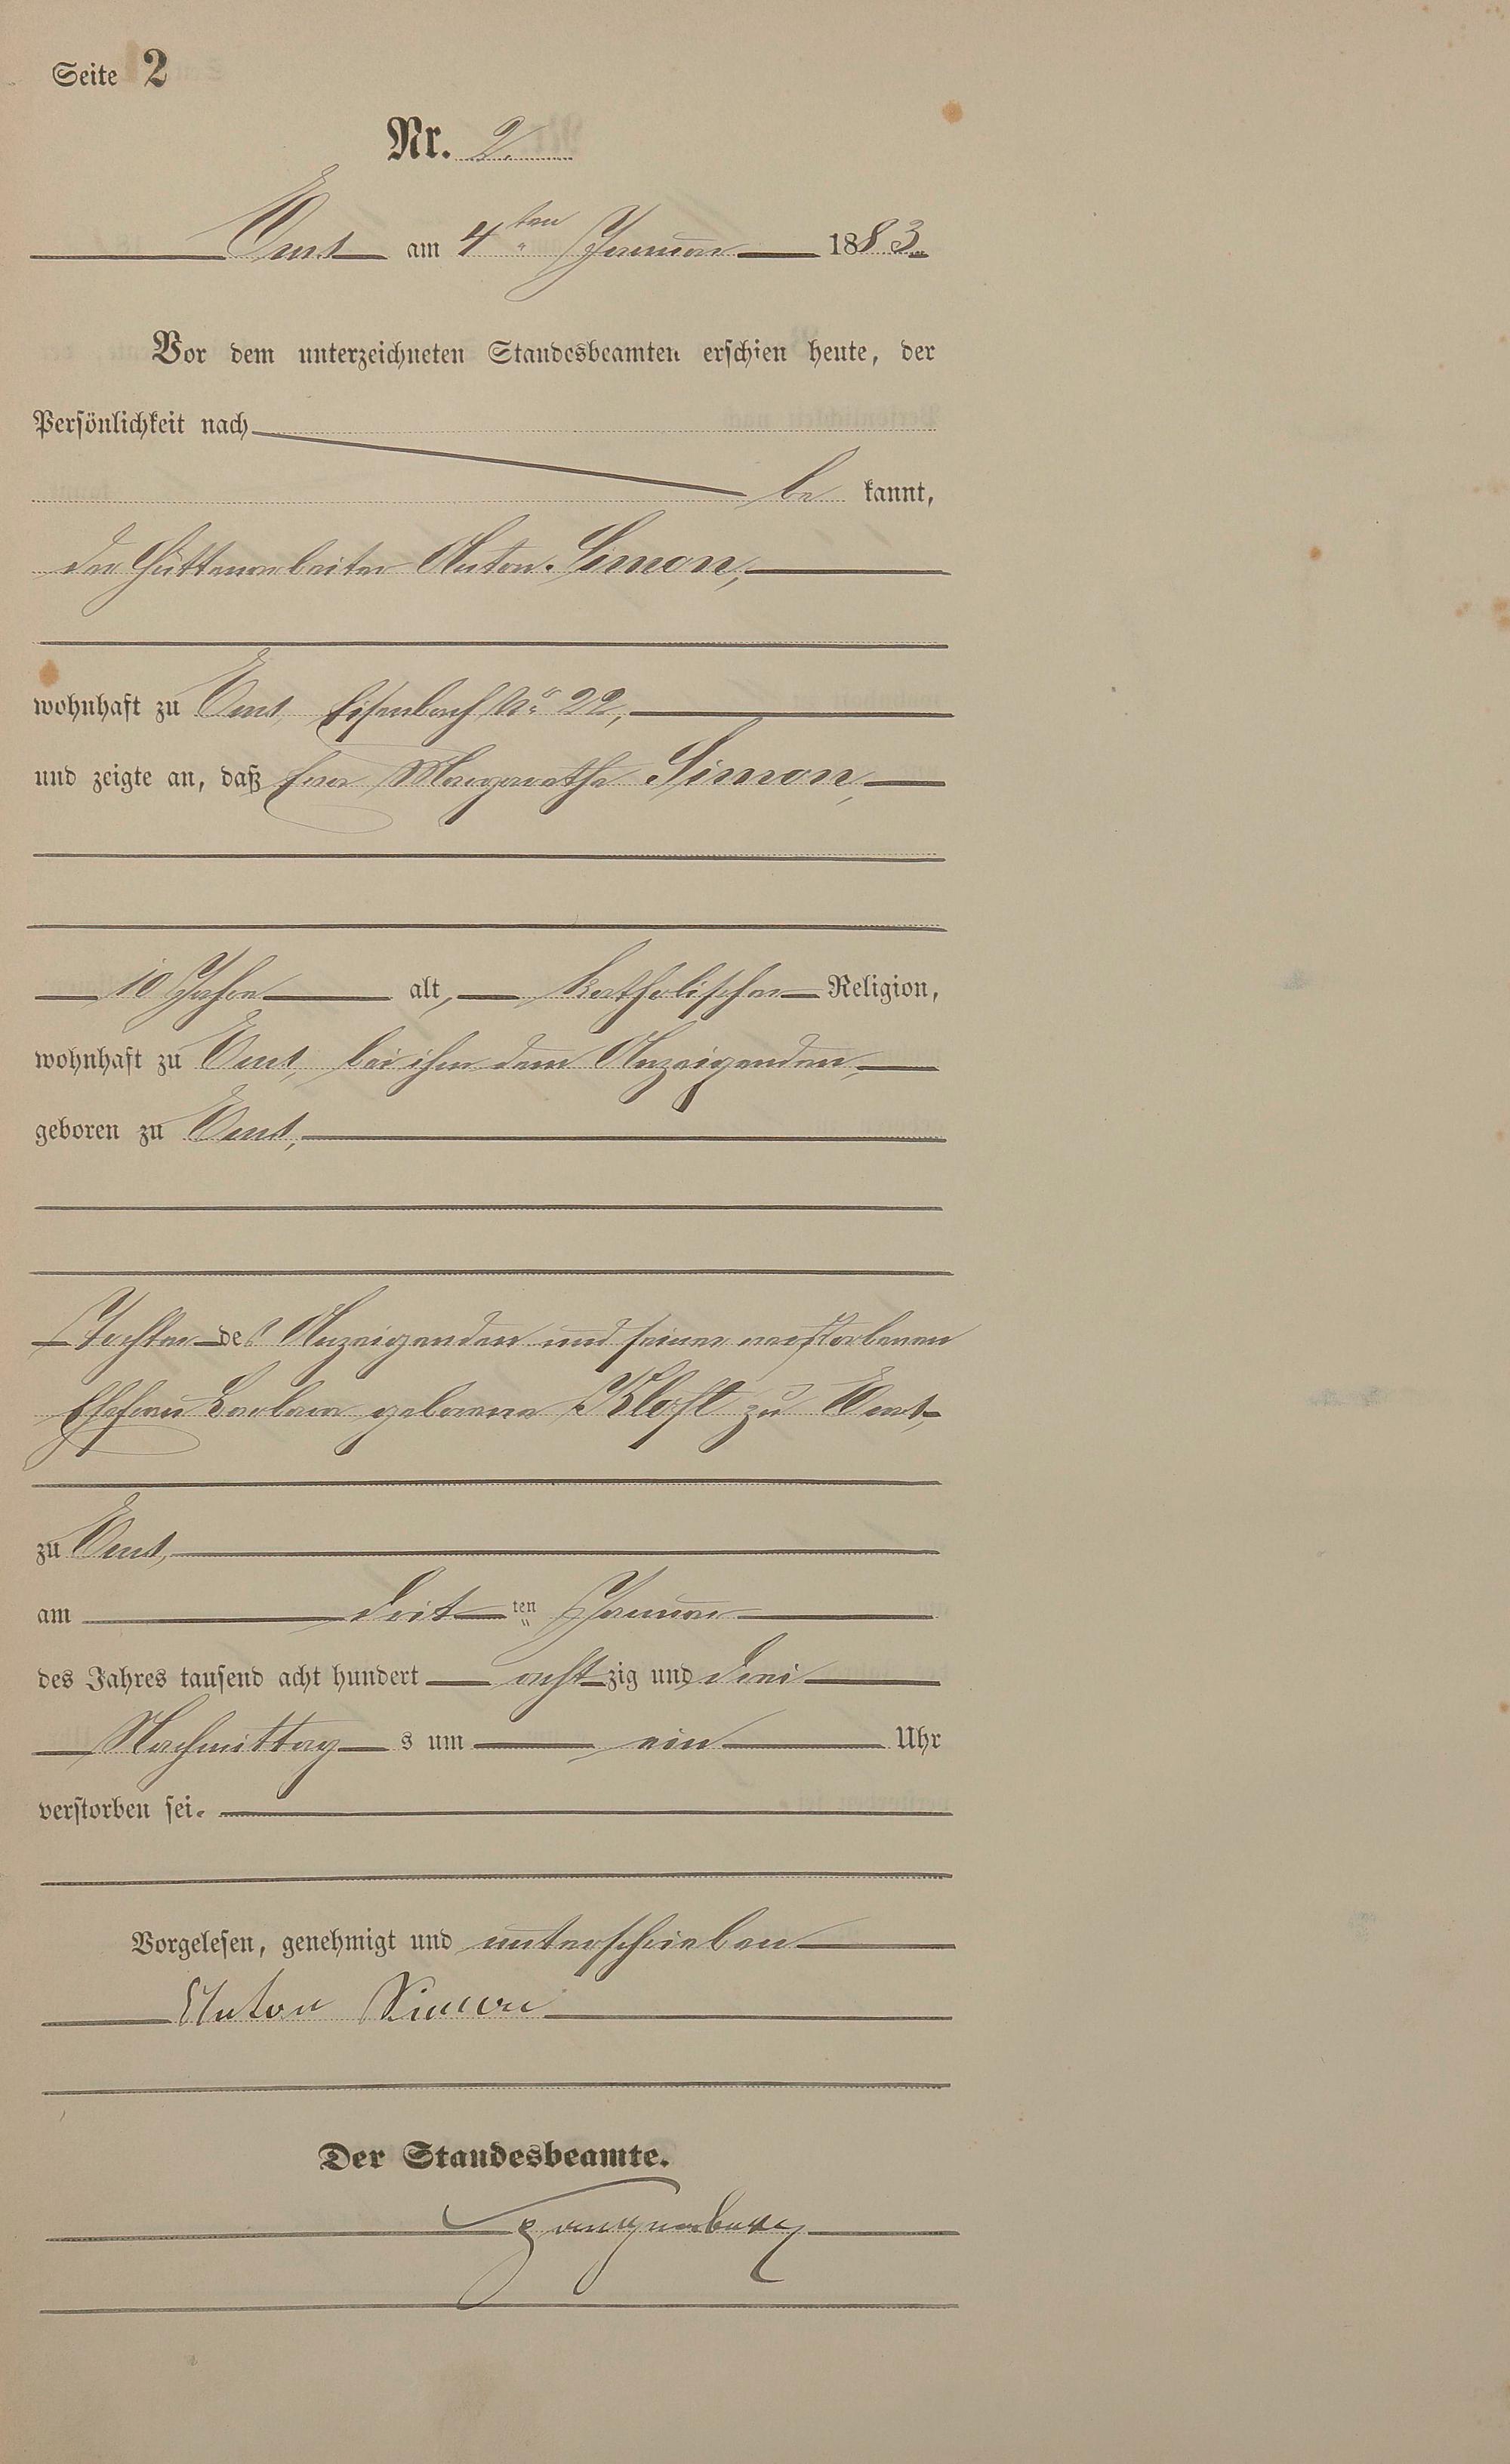 Seite 2
Nr. 2.
Ems am 4ten Januar 1883
Vor dem unterzeichneten Standesbeamten erschien heute, der
Persönlichkeit nach
be kannt,
der Hüttenarbeiter Anton Simon,
wohnhaft zu Ems, Eisenbach No 22,
und zeigte an, daß Eva Margarethe Simon,
10 Jahre alt, katholischer Religion,
wohnhaft zu Ems, bei ihm dem Anzeigenden,
geboren zu Ems,
Tochter des Anzeigenden und seiner verstorbenen
Ehefrau Barbara geborene Kloft zu Ems,
zu Ems,
am drit ten Januar
des Jahres tausend acht hundert acht zig und drei
Nachmittag s um ein Uhr
verstorben sei.
Vorgelesen, genehmigt und unterschrieben
Anton Simon
Der Standesbeamte.